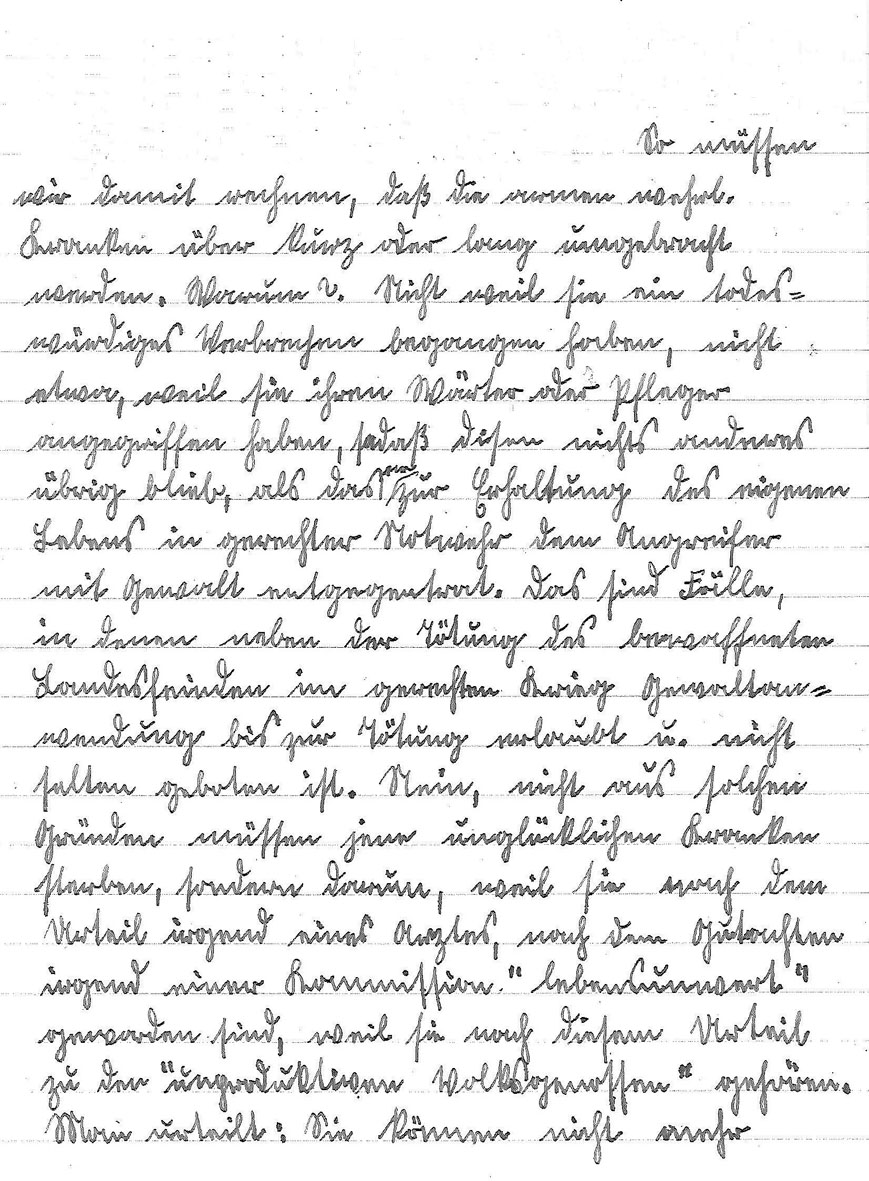 So müssen
wir damit rechnen, daß die armen wehrl.
Kranken über kurz oder lang umgebracht
werden. Warum?. Nicht weil sie ein todes=
würdiges Verbrechen begangen haben, nicht
etwa, weil sie ihren Wärter oder Pfleger
angegriffen haben, sodaß disen nichts anderes
übrig blieb, als das er zur Erhaltung des eigenen
Lebens in gerechter Notwehr dem Angreifer
mit Gewalt entgegentrat. Das sind Fälle,
in denen neben der Tötung des bewaffneten
Landesfeinden im gerechten Krieg Gewaltan=
wendung bis zur Tötung erlaubt u. nicht
selten geboten ist. Nein, nicht aus solchen
Gründen müssen jene unglücklichen Kranken
sterben, sondern darum, weil sie nach dem
Urteil irgend eines Arztes, nach dem Gutachten
irgend einer Kommission "lebensunwert"
geworden sind, weil sie nach diesem Urteil
zu den "unproduktiven Volksgenossen" gehören.
Man urteilt: Sie können nicht mehr